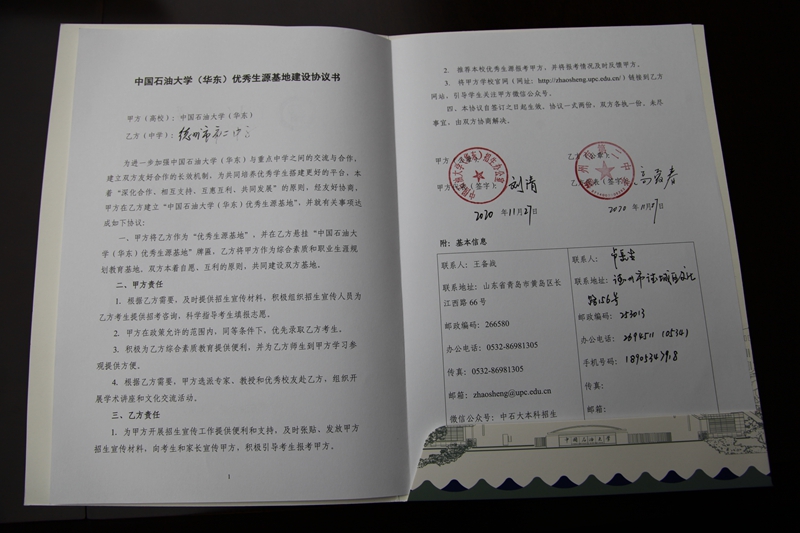 中国石油大学（华东）优秀生源基地建设协议书
甲方（高校）：中国石油大学（华东）
乙方（中学）：德州市第二中学
为进一步加强中国石油大学（华东）与重点中学之间的交流与合作，
建立双方友好合作的长效机制，为共同培养优秀学生搭建更好的平台，本
着“深化合作、相互支持、互惠互利、共同发展”的原则，经友好协商，
甲方在乙方建立“中国石油大学（华东）优秀生源基地”，并就有关事项达
成如下协议：
一、甲方将乙方作为“优秀生源基地”，并在乙方悬挂“中国石油大
学（华东）优秀生源基地”牌匾，乙方将甲方作为综合素质和职业生涯规
划教育基地。双方本着自愿、互利的原则，共同建设双方基地。
二、甲方责任
1. 根据乙方需要，及时提供招生宣传材料，积极组织招生宣传人员为
乙方考生提供招考咨询，科学指导考生填报志愿。
2. 甲方在政策允许的范围内，同等条件下，优先录取乙方考生。
3. 积极为乙方综合素质教育提供便利，并为乙方师生到甲方学习参
观提供方便。
4. 根据乙方需要，甲方选派专家、教授和优秀校友赴乙方，组织开
展学术讲座和文化交流活动。
三、乙方责任
1. 为甲方开展招生宣传工作提供便利和支持，及时张贴、发放甲方
招生宣传材料，向考生和家长宣传甲方，积极引导考生报考甲方。
1
2. 推荐本校优秀生源报考甲方，并将报考情况及时反馈甲方。
3. 将甲方学校官网（网址：http://zhaosheng.upc.edu.cn/）链接到乙方
网站，引导学生关注甲方微信公众号。
四、本协议自签订之日起生效。协议一式两份，双方各执一份。未尽
事宜，由双方协商解决。
甲方
乙方（公章）：
（签字）：刘清
（签字）：
2020 年 11 月 27 日
2020 年 11 月 27 日
附：基本信息
联系人：王备战
联系地址：山东省青岛市黄岛区长
江西路 66 号
邮政编码：266580
办公电话：0532-86981305
传真：0532-86981305
邮箱：zhaosheng@upc.edu.cn
微信公众号：中石大本科招生
联系人：
联系地址：德州市德城区文化
路156号
邮政编码：253013
办公电话：2694511 105341
手机号码：
传真：
邮箱：
中国石油大学